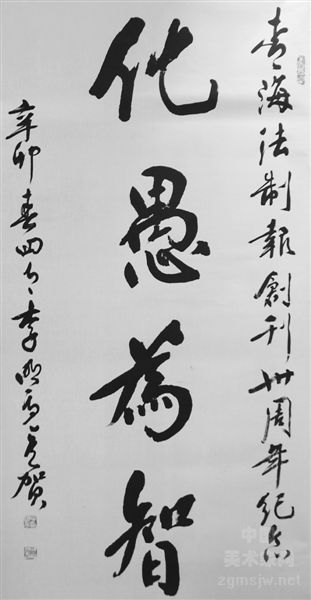 青海法制報創刊卅周年纪念
化愚為智
辛卯春四月李
賀
中国美术数网
zgmsjw.net